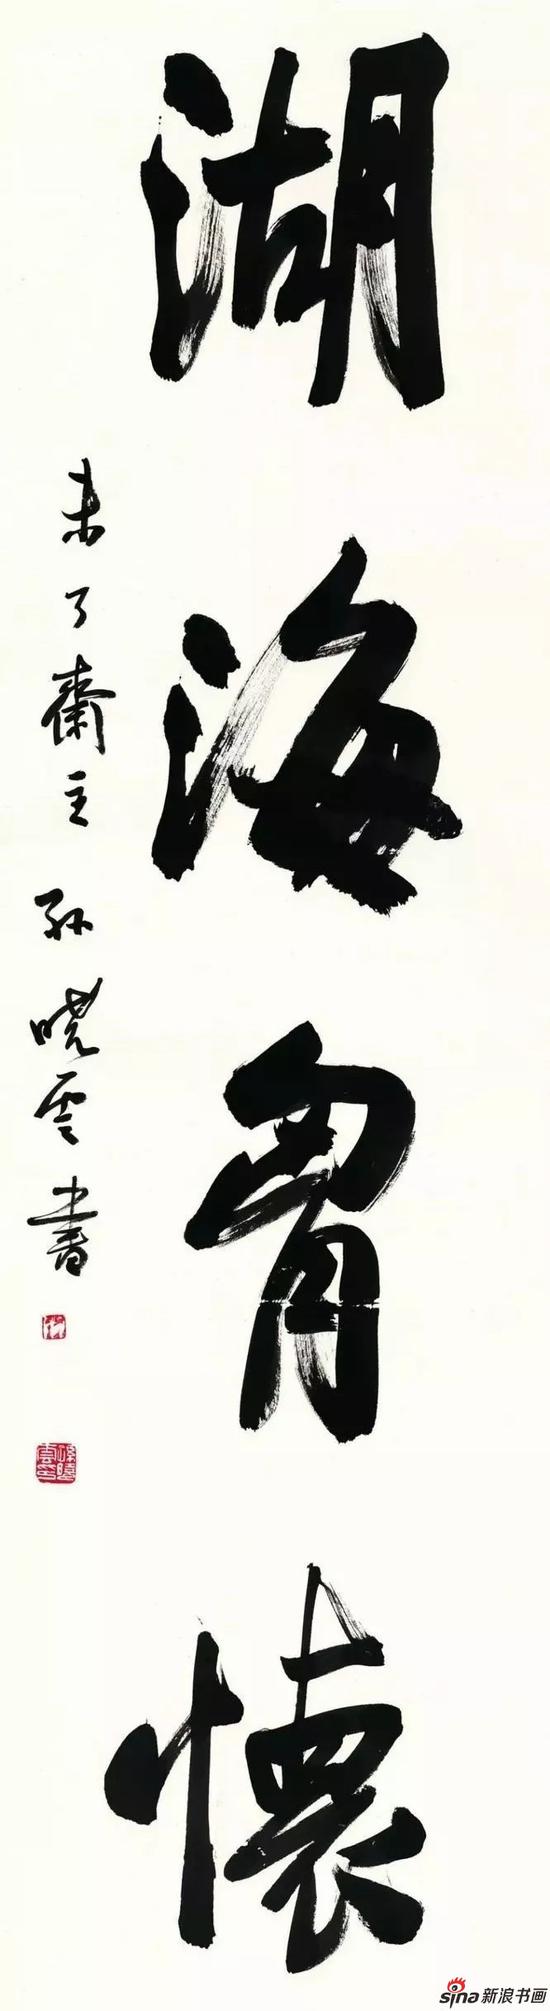 湖海胷懷
未了齋主 孫曉雲書
sina新浪书画